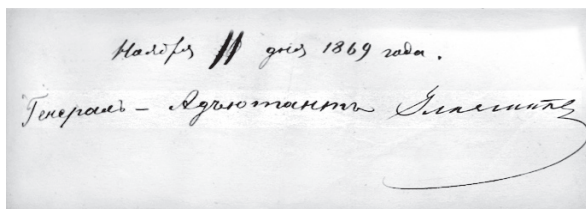 Ноября 11 дня 1869 года.
Генералъ – Адъютантъ